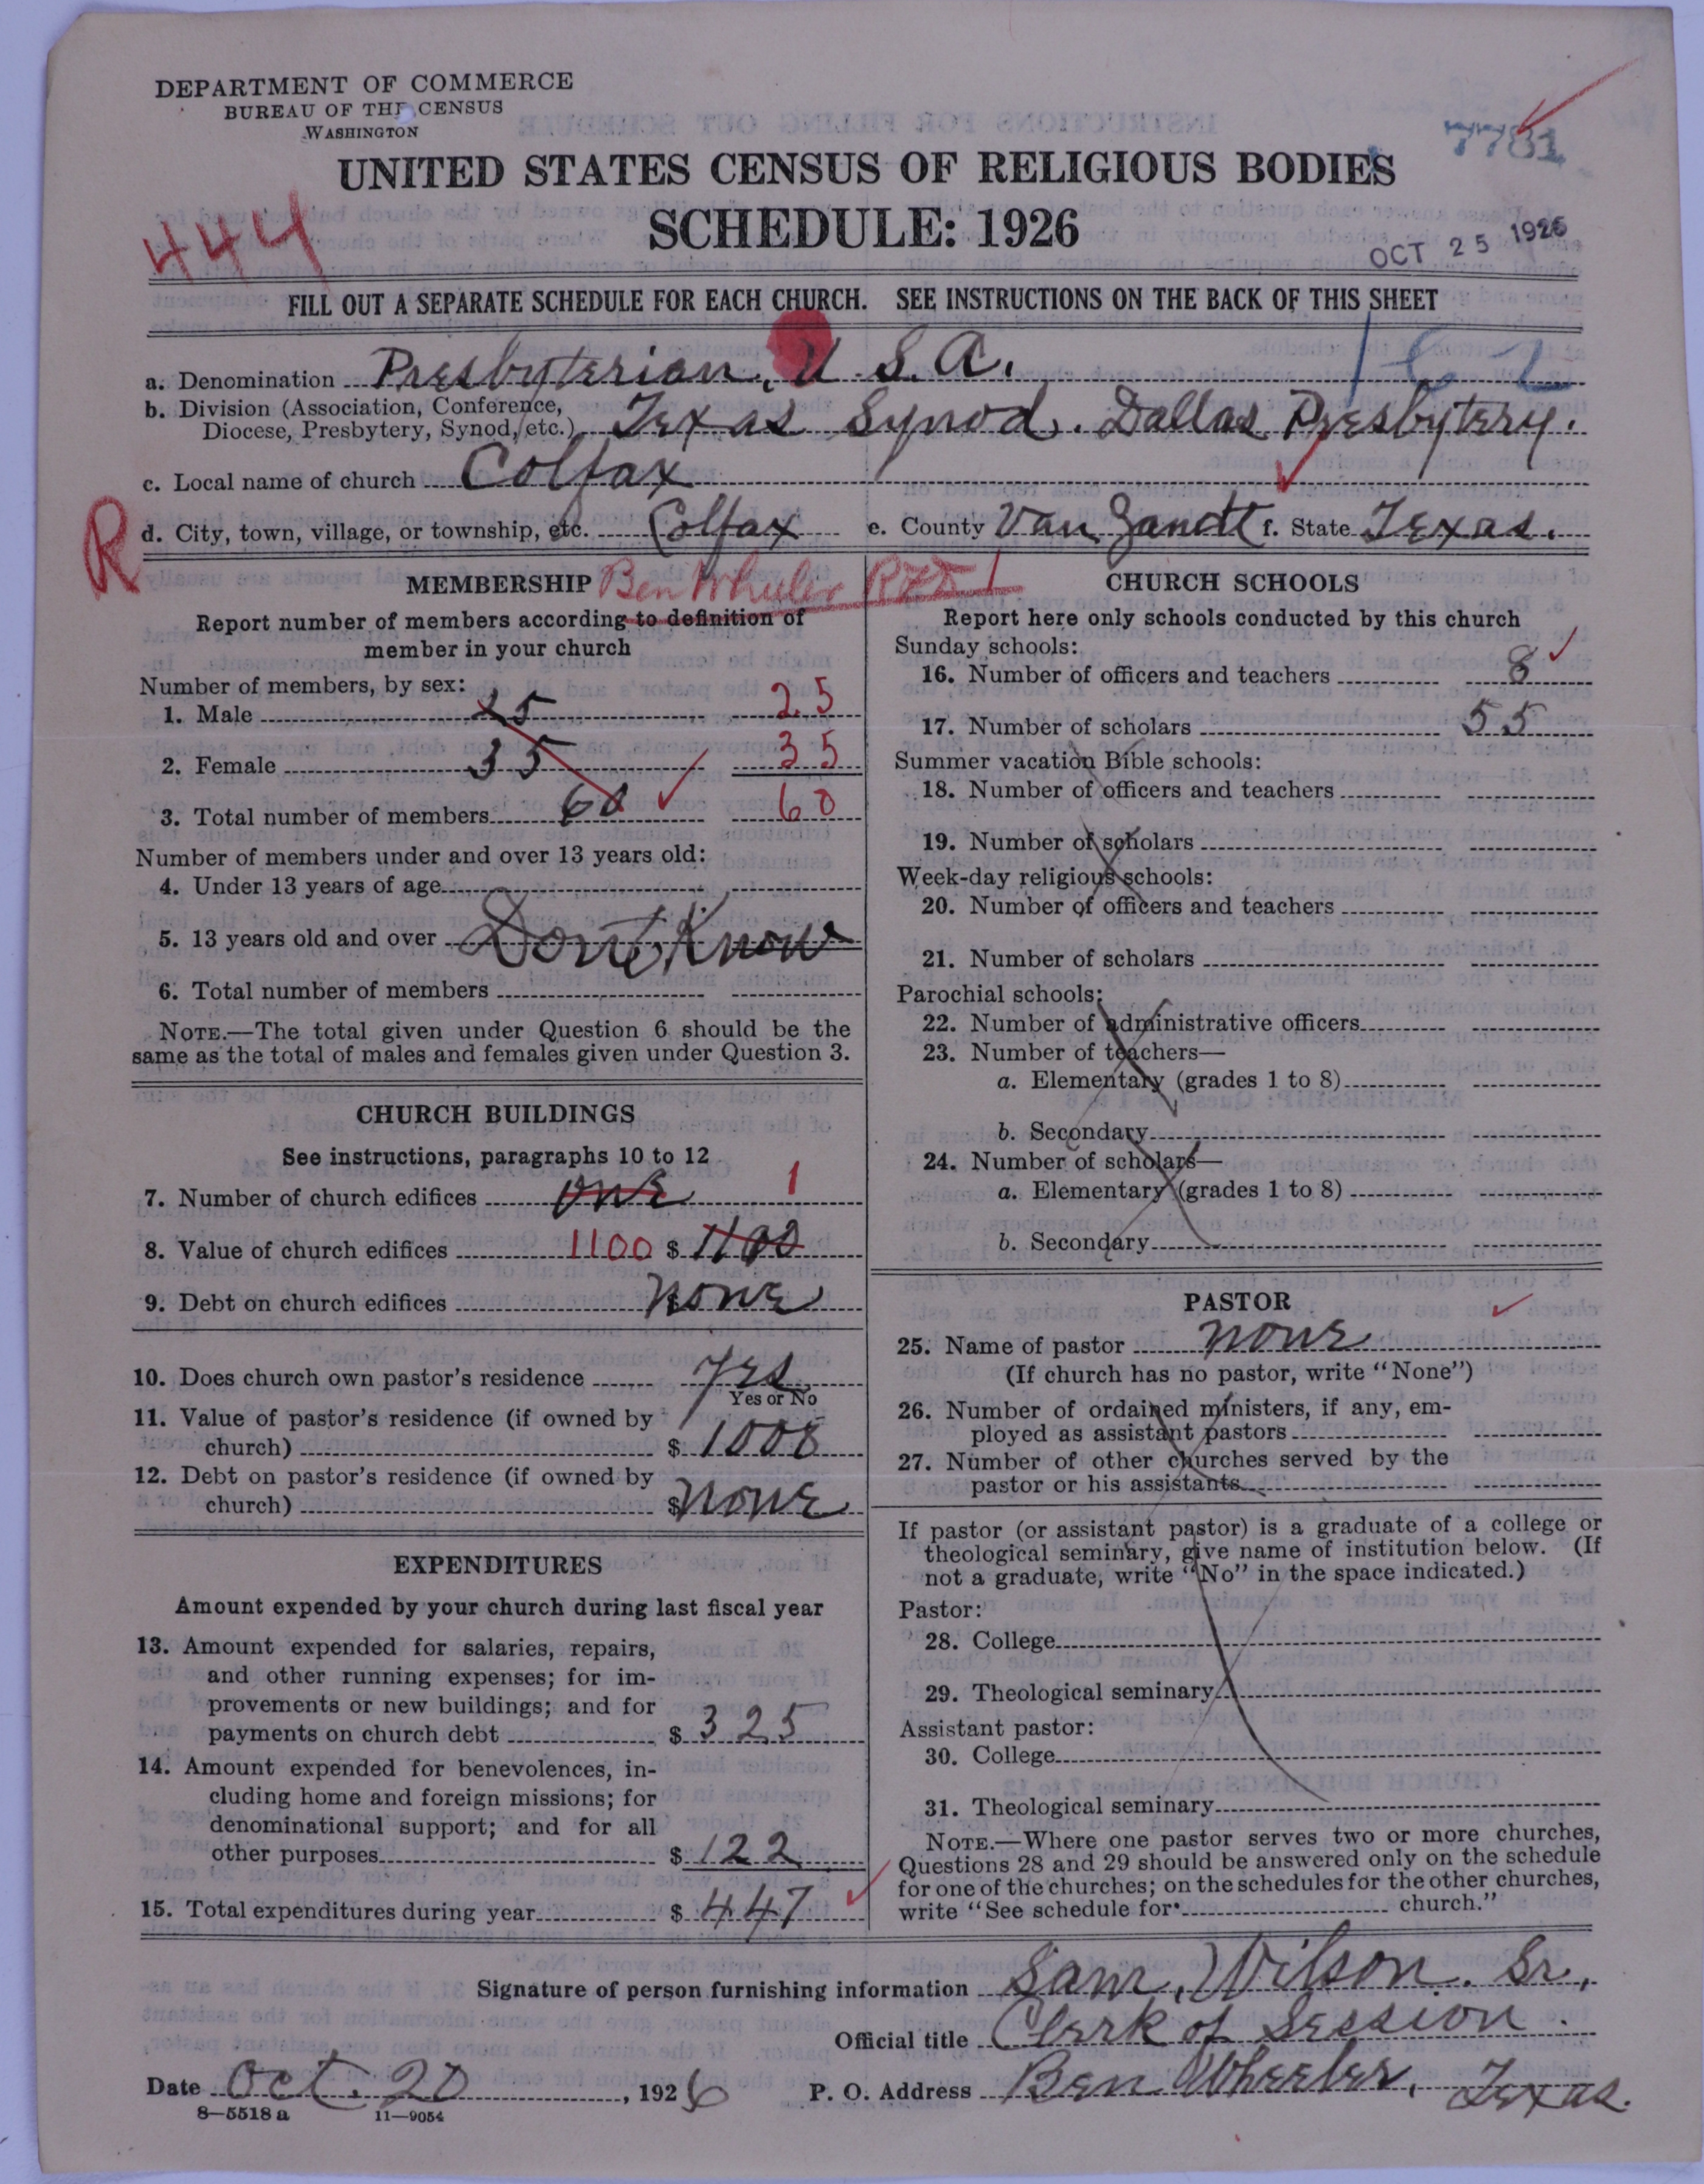 DEPARTMENT OF COMMERCE
BUREAU OF THE CENSUS
WASHINGTON
7781
UNITED STATES CENSUS OF RELIGIOUS BODIES
444
SCHEDULE: 1926
OCT 25 1926
FILL OUT A SEPARATE SCHEDULE FOR EACH CHURCH. SEE INSTRUCTIONS ON THE BACK OF THIS SHEET
a. Denomination Presbyterian, U.S.A. 162
b. Division (Association, Conference, Diocese, Presbytery, Synod, etc.) Texas Synod. Dallas Presbytery.
c. Local name of church Colfax
R d. City, town, village, or township, etc. Colfax e. County Van Zandt f. State Texas.
MEMBERSHIP Ben Wheeler RFD 1
Report number of members according to definition of
member in your church
Number of members, by sex:
1. Male 25 25
2. Female 35 35
3. Total number of members 60 60
Number of members under and over 13 years old:
4. Under 13 years of age
5. 13 years old and over Dont Know
6. Total number of members
NOTE.—The total given under Question 6 should be the
same as the total of males and females given under Question 3.
CHURCH BUILDINGS
See instructions, paragraphs 10 to 12
7. Number of church edifices one 1
8. Value of church edifices 1100 $ 1100
9. Debt on church edifices $ none
10. Does church own pastor's residence yes
Yes or No
11. Value of pastor's residence (if owned by
church) $ 1000
12. Debt on pastor's residence (if owned by
church) $ none
EXPENDITURES
Amount expended by your church during last fiscal year
13. Amount expended for salaries, repairs,
and other running expenses; for im-
provements or new buildings; and for
payments on church debt $ 325
14. Amount expended for benevolences, in-
cluding home and foreign missions; for
denominational support; and for all
other purposes $ 122
15. Total expenditures during year $ 447
CHURCH SCHOOLS
Report here only schools conducted by this church
Sunday schools:
16. Number of officers and teachers 8
17. Number of scholars 55
Summer vacation Bible schools:
18. Number of officers and teachers
19. Number of scholars
Week-day religious schools:
20. Number of officers and teachers
21. Number of scholars
Parochial schools:
22. Number of administrative officers
23. Number of teachers—
a. Elementary (grades 1 to 8)
b. Secondary
24. Number of scholars—
a. Elementary (grades 1 to 8)
b. Secondary
PASTOR
25. Name of pastor none
(If church has no pastor, write "None")
26. Number of ordained ministers, if any, em-
ployed as assistant pastors
27. Number of other churches served by the
pastor or his assistants
If pastor (or assistant pastor) is a graduate of a college or
theological seminary, give name of institution below. (If
not a graduate, write "No" in the space indicated.)
Pastor:
28. College
29. Theological seminary
Assistant pastor:
30. College
31. Theological seminary
NOTE.—Where one pastor serves two or more churches,
Questions 28 and 29 should be answered only on the schedule
for one of the churches; on the schedules for the other churches,
write "See schedule for church."
Signature of person furnishing information Sam, Wilson. Sr,
Official title Clerk of Session.
Date Oct. 20, 1926 P. O. Address Ben Wheeler, Texas.
8—5518 a 11—9054